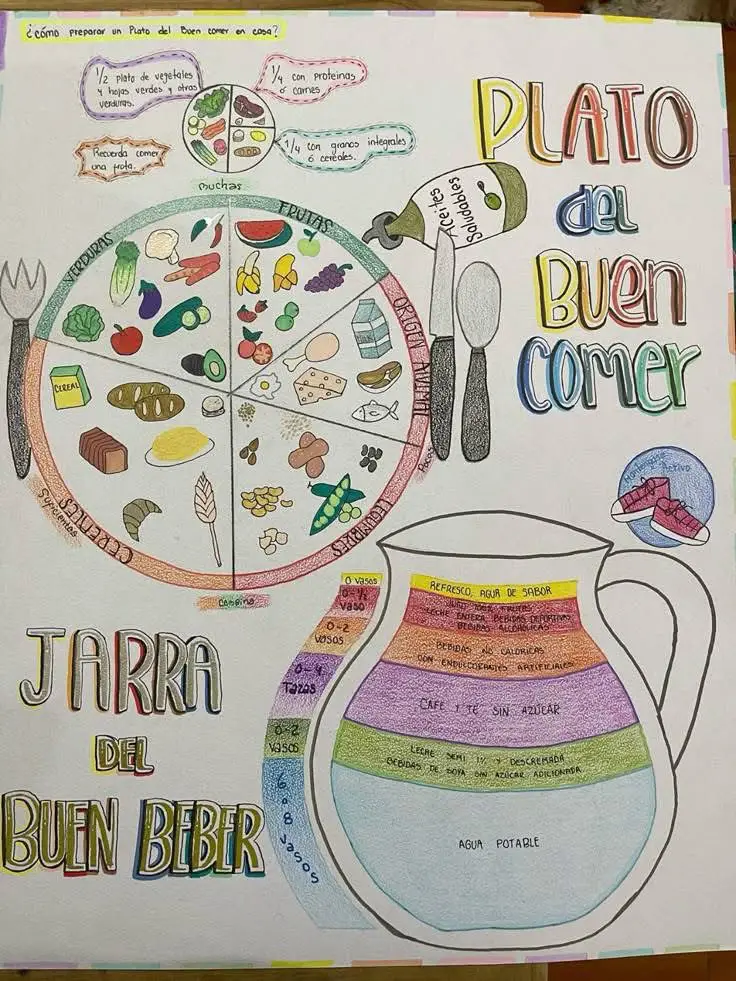 ¿cómo preparar un Plato del Buen comer en casa?
1/2 plato de vegetales
y hojas verdes y otras
verduras.
1/4 con proteinas
ó carnes
Recuerda comer
una fruta.
1/4 con granos integrales
ó cereales.
PLATO
del
Buen
Comer
Aceites
Saludables
muchas
VERDURAS
FRUTAS
ORIGEN ANIMAL
Pocos
LEGUMBRES
Combina
CEREALES
Suficientes
CEREAL
Activo
JARRA
DEL
BUEN BEBER
0 vasos
0 - 1/2
vaso
0-2
vasos
0-4
Tazas
0-2
vasos
6 o 8 vasos
REFRESCO, AGUA DE SABOR
JUGO 100% FRUTAS
LECHE ENTERA BEBIDAS DEPORTIVAS
BEBIDAS ALCOHOLICAS
BEBIDAS NO CALORICAS
CON ENDULCORANTES ARTIFICIALES
CAFE Y TÉ SIN AZÚCAR
LECHE SEMI 1% Y DESCREMADA
BEBIDAS DE SOYA SIN AZÚCAR ADICIONADA
AGUA POTABLE